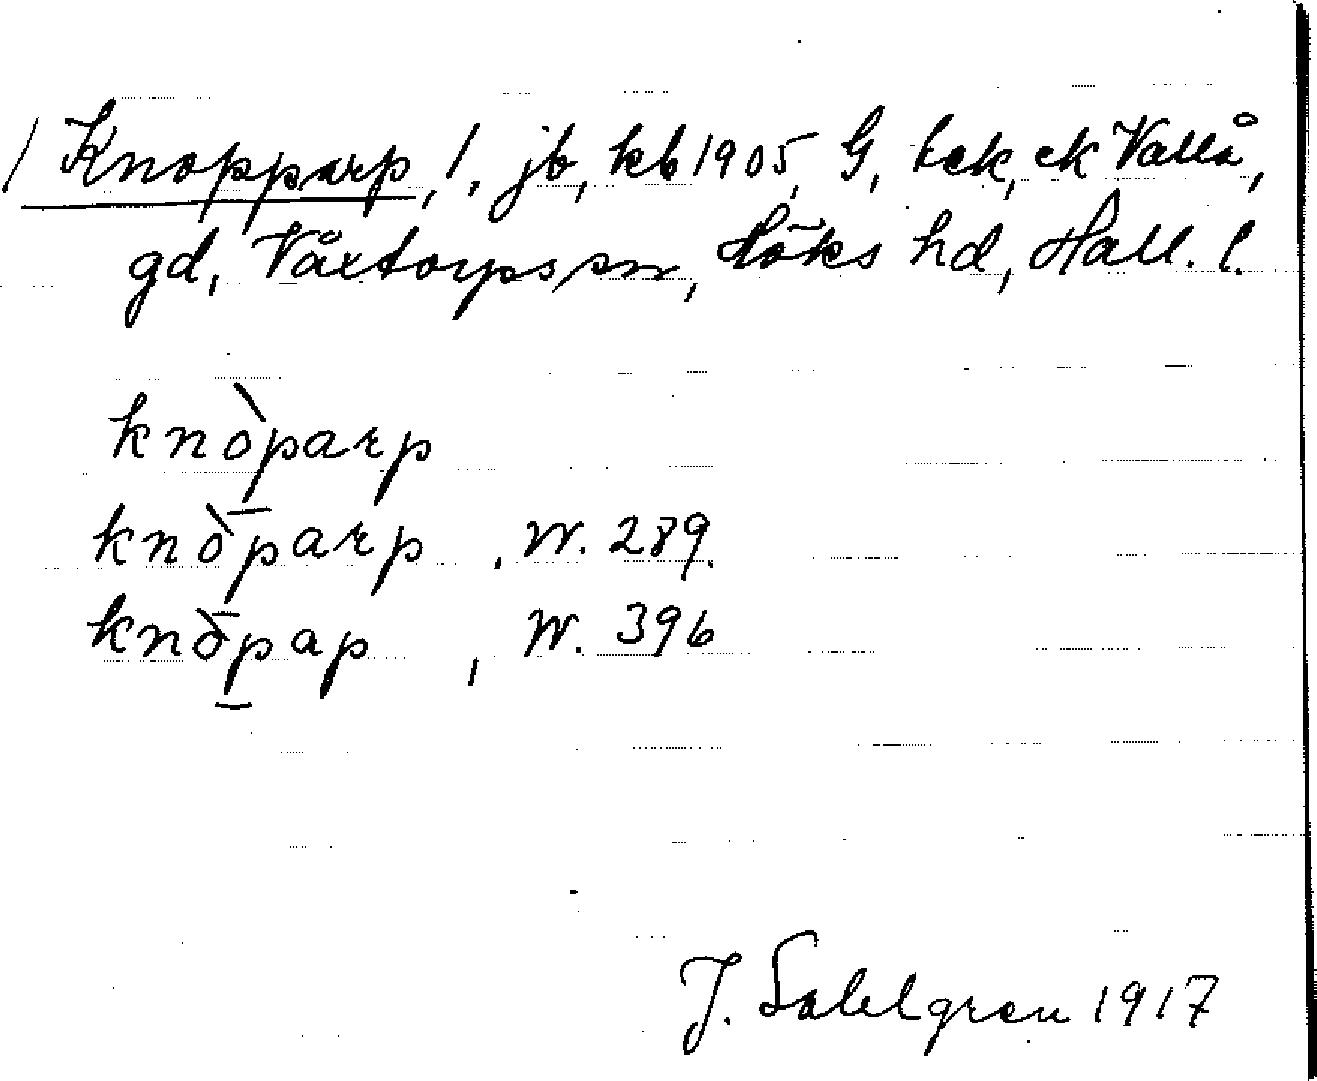 / Knopparp, 1, jb, kb 1905, G, tek, ek Vallå,
gd, Våxtorps sn, Höks hd, Hall. l.
knòparp
knòp̄arp , W. 289.
knòp̄ap , W. 396
J. Sahlgren 1917